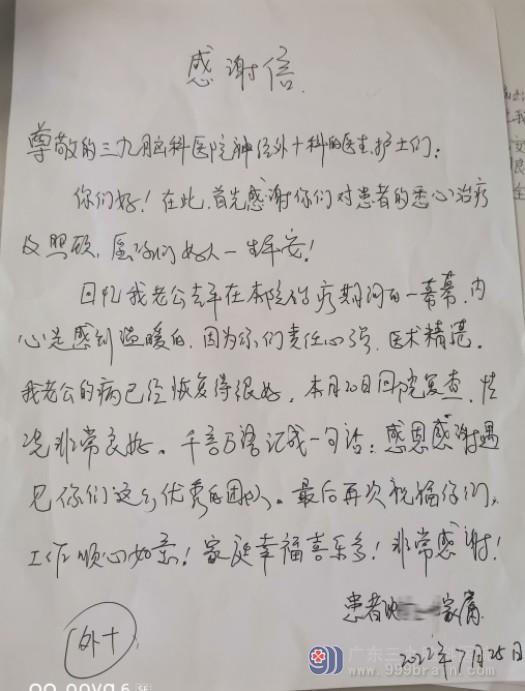 感谢信
尊敬的三九脑科医院神经外十科的医生.护士们:
你们好!在此.首先感谢你们对患者的悉心治疗
及照顾,愿你们好人一生平安!
回忆我老公去年在本院治疗期间的一幕幕,内
心是感到温暖的,因为你们责任心强,医术精湛。
我老公的病已经恢复得很好,本月20日回院复查,情
况非常良好。千言万语汇成一句话:感恩感谢遇
见你们这么优秀的团队。最后再次祝福你们,
工作顺心如意!家庭幸福喜乐多!非常感谢!
患者 家属
2022年7月25日
外十
广东三九脑科
www.999brain.com